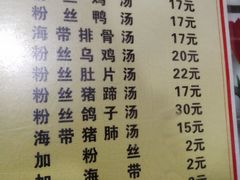 丝 汤 17元
粉 丝 鸭 汤 17元
海 带 排 骨 汤 17元
粉 丝 乌 鸡 汤 20元
粉 丝 肚 片 汤 22元
粉 丝 猪 蹄 汤 17元
粉 丝 鸽 子 汤 30元
海 带 猪 肺 汤 15元
加 粉 丝 2元
加 海 带 2元
2元